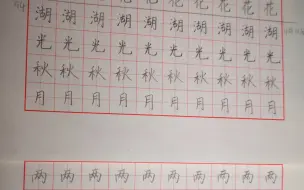 花 花 花 花
湖 湖 湖 湖 湖 湖 湖 湖 湖 湖
光 光 光 光 光 光 光 光 光 光
秋 秋 秋 秋 秋 秋 秋 秋 秋 秋
月 月 月 月 月 月 月 月 月 月
两 两 两 两 两 两 两 两 两 两